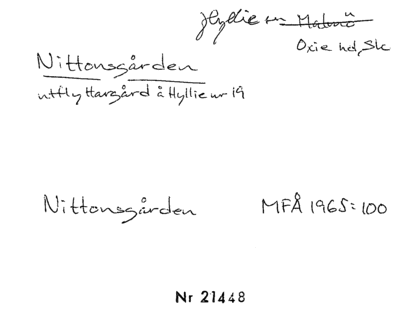 Hyllie sn Malmö
Oxie hd, Sk
Nittonsgården
utflyttargård å Hyllie nr 19
Nittonsgården MFÅ 1965:100
Nr 21448